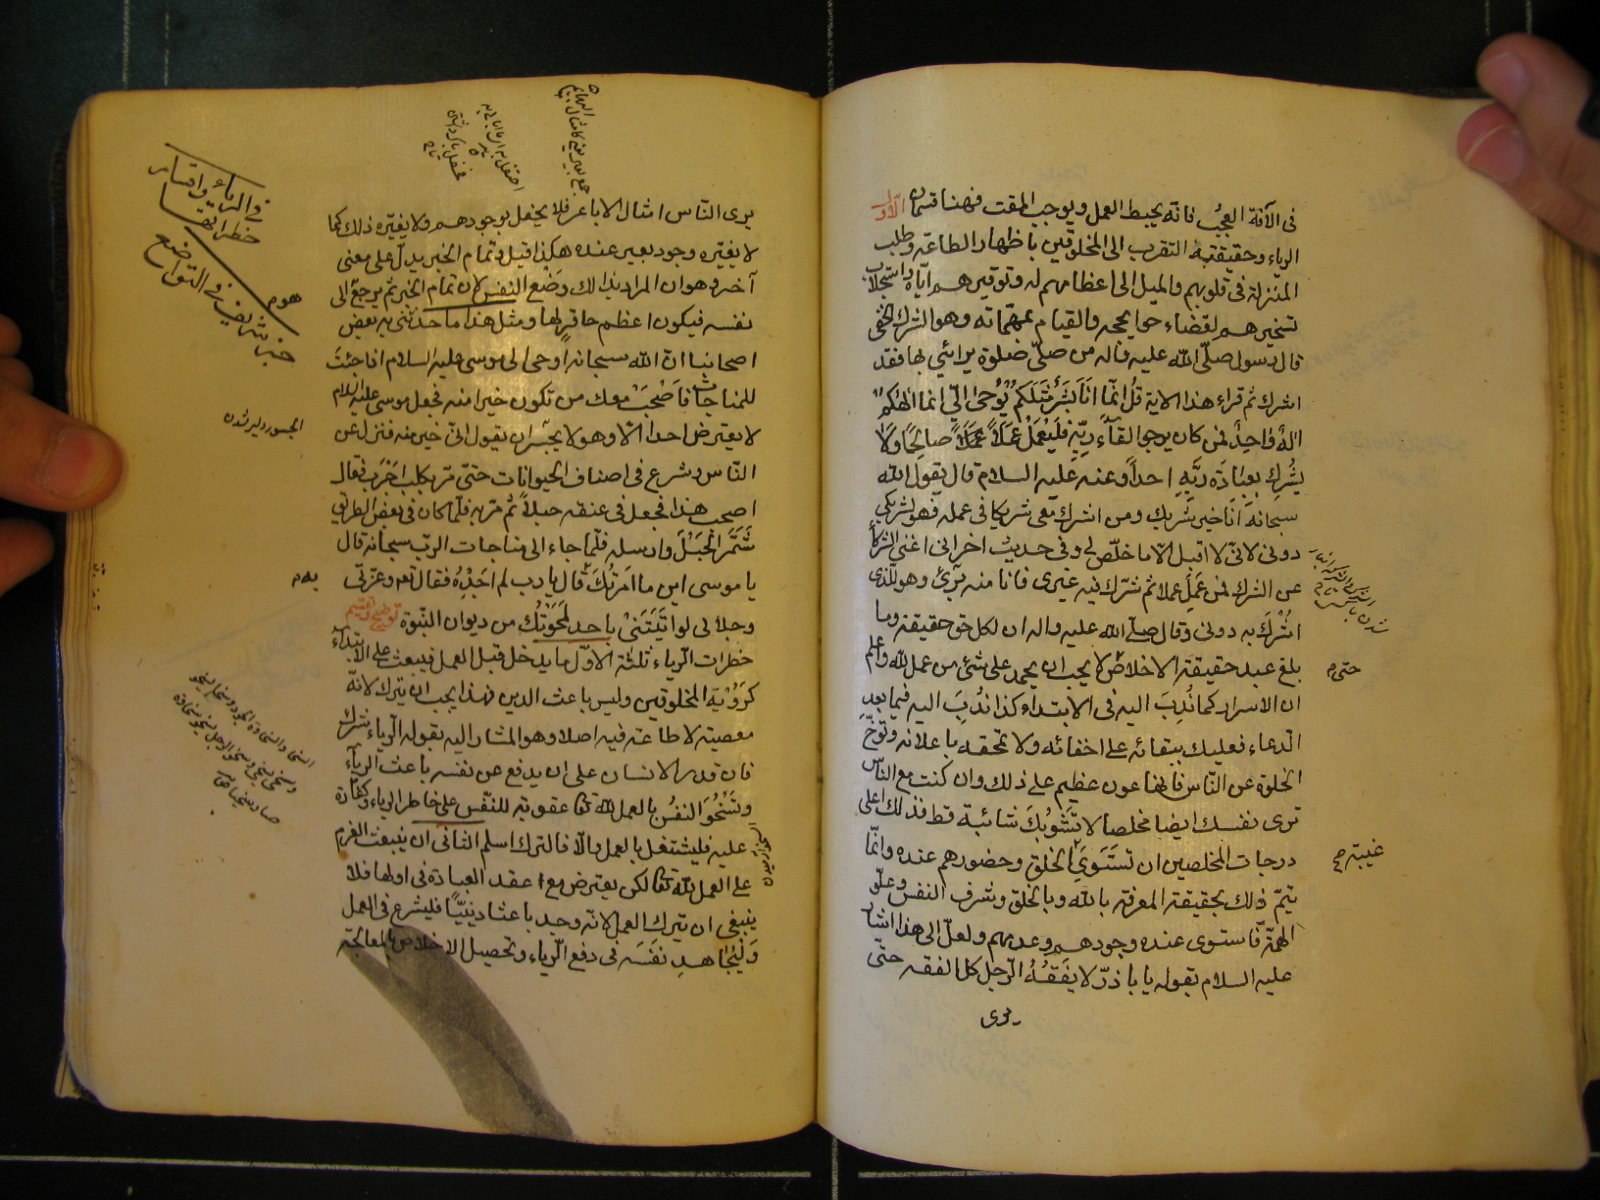 فى الآفة العجب فانه يحبط العمل ويوجب المقت فهنا قسمان الاول
الرياء وحقيقته التقرب الى المخلوقين باظهار الطاعة وطلب
المنزلة فى قلوبهم والميل الى اعظامهم له وتوقيرهم اياه واستجلاب
تسخيرهم لقضاء حوايجه والقيام بمهماته وهو الشرك الخفى
قال رسول صلى الله عليه واله من صلى صلوة يرائي بها فقد
اشرك ثم قراء هذا الاية قل انما انا بشر مثلكم يوحى الي انما الهكم
اله واحد فمن كان يرجو القاء ربه فليعمل عملا عملا صالحا ولا
يشرك بعبادة ربه احدا وعنه عليه السلام قال يقول الله
سبحانه انا خير شريك ومن اشرك معى شريكا فى عمله فهو لشريكي
دونى لانى لا اقبل الا ما خلص لى وفى حديث اخر انى اغنى الشركاء
عن الشرك فمن عمل عملا ثم شرك فيه غيرى فانا منه برئ وهو للذى
اشرك به دونى وقال صلى الله عليه واله ان لكل حق حقيقة وما
بلغ عبد حقيقة الاخلاص لا يحب ان يحمد على شئ من عمل لله واعلم
حتى م
ان الاسرار كما ندب اليه فى الابتداء كذا ندب اليه فيما بعد
الدعاء فعليك ببقائه على اخفائه ولا تمحقه باعلانه وتوخ
الخلوة عن الناس فانها عون عظيم على ذلك وان كنت مع الناس
ترى نفسك ايضا مخلصا لا تشوبك شائبة قط فذلك اعلى
درجات المخلصين ان تستوي الخلق وحضورهم عنده وانما
غيبة صح
يتم ذلك بحقيقة المعرفة بالله وبالخلق وشرف النفس وعلو
الهمة فاستوى عنده وجودهم وعدمهم ولعل الى هذا اشار
عليه السلام بقوله يا باذر لا يفقه الرجل كل الفقه حتى
يرى
يرى الناس امثال الاباعر فلا يحفل بوجودهم ولا يغيره ذلك كما
لا يغيره وجود بعير عنده هكذا قيل وتمام الخبر يدل على معنى
آخر وهو ان المراد بذالك وضع النفس لان تمام الخبر ثم يرجع الى
نفسه فيكون اعظم حاقر لها ومثل هذا ما حدثنى به بعض
اصحابنا ان الله سبحانه اوحى الى موسى عليه السلام اذا جئت
للمناجات فاصحب معك من تكون خيرا منه فجعل موسى عليه السلام
لا يعترض احدا الا وهو لا يجسر ان يقول انى خير منه فنزل عن
الناس وشرع فى اصناف الحيوانات حتى مر بكلب اجرب فقال
اصحب هذا فجعل فى عنقه حبلا ثم مر به فلما كان فى بعض الطريق
شمر الحبل وارسله فلما جاء الى مناجات الرب سبحانه قال
يا موسى اين ما امرتك قال يا رب لم اجده فقال تعم وعزتى
به م
وجلالى لو اتيتنى باحد لمحوتك من ديوان النبوة توضيح وتقسيم
خطرات الرياء ثلثة الاول ما يدخل قبل العمل فيبعث على الابتداء
كرؤية المخلوقين وليس باعث الدين فهذا يجب ان يترك لانه
معصية لا طاعة فيه اصلا وهو المشار اليه بقوله الرياء شرك
فان قدر الانسان على ان يدفع عن نفسه باعث الرياء
وتسخو النفس بالعمل لله تعا عقوبة للنفس على خاطر الرياء وكفارة
عليه فليشتغل بالعمل والا فالترك اسلم الثانى ان ينبعث الغرم
على العمل لله تعا لكن يعترض مع عقد العبادة فى اولها فلا
ينبغى ان يترك العمل لانه وجد باعثا دينيا فليشرع فى العمل
وليجاهد نفسه فى دفع الرياء وتحصيل الاخلاص بالمعالجة
فى الرياء واقسام
خطراتها
خبر شريف فى التواضع